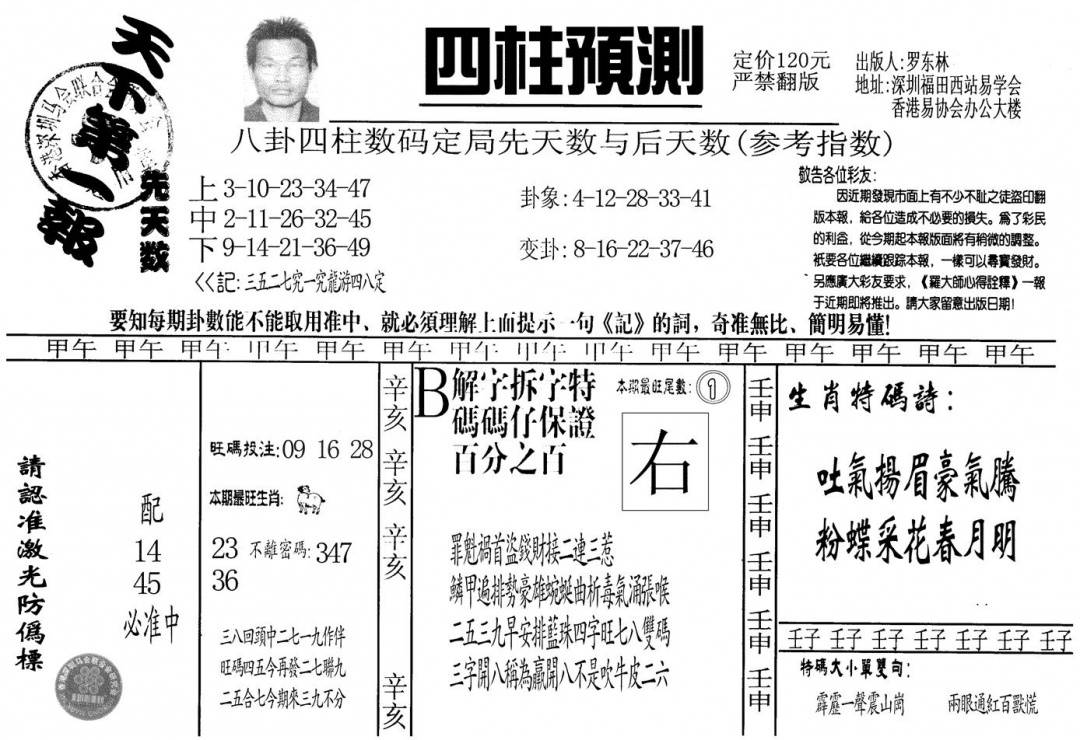 天下第一報
四柱預測
定价120元
严禁翻版
出版人:罗东林
地址:深圳福田西站易学会
香港易协会办公大楼
八卦四柱数码定局先天数与后天数(参考指数)
先天数
上 3-10-23-34-47
中 2-11-26-32-45
下 9-14-21-36-49
<<記:三五二七究一究龍游四八定
卦象:4-12-28-33-41
变卦:8-16-22-37-46
敬告各位彩友:
因近期發現市面上有不少不耻之徒盜印翻
版本報,給各位造成不必要的損失。爲了彩民
的利益,從今期起本報版面將有稍微的調整。
衹要各位繼續跟踪本報,一樣可以尋寶發財。
另應廣大彩友要求,《羅大師心得詮釋》一報
于近期即將推出。請大家留意出版日期!
要知每期卦數能不能取用准中、就必須理解上面提示一句《記》的詞,奇准無比、簡明易懂!
甲午 甲午 甲午 甲午 甲午 甲午 甲午 甲午 甲午 甲午 甲午 甲午 甲午 甲午 甲午
請認准激光防僞標
配
14
45
必准中
旺碼投注:09 16 28
本期最旺生肖:
23 不離密碼:347
36
三八回頭中二七一九作伴
旺碼四五今再發二七聯九
二五合七今期來三九不分
辛亥 辛亥 辛亥 辛亥
B
解字拆字特
碼碼仔保證
百分之百
本期最旺尾數:①
右
罪魁禍首盜錢財接二連三惹
鱗甲遍排勢豪雄蜿蜒曲析毒氣涌張喉
二五三九早安排藍珠四字旺七八雙碼
三字開八稱為贏開八不是吹牛皮二六
壬申 壬申 壬申 壬申 壬申 壬申
生肖特碼詩:
吐氣揚眉豪氣騰
粉蝶采花春月明
壬子 壬子 壬子 壬子 壬子 壬子 壬子
特碼大小單雙句:
霹靂一聲震山崗 兩眼通紅百獸慌